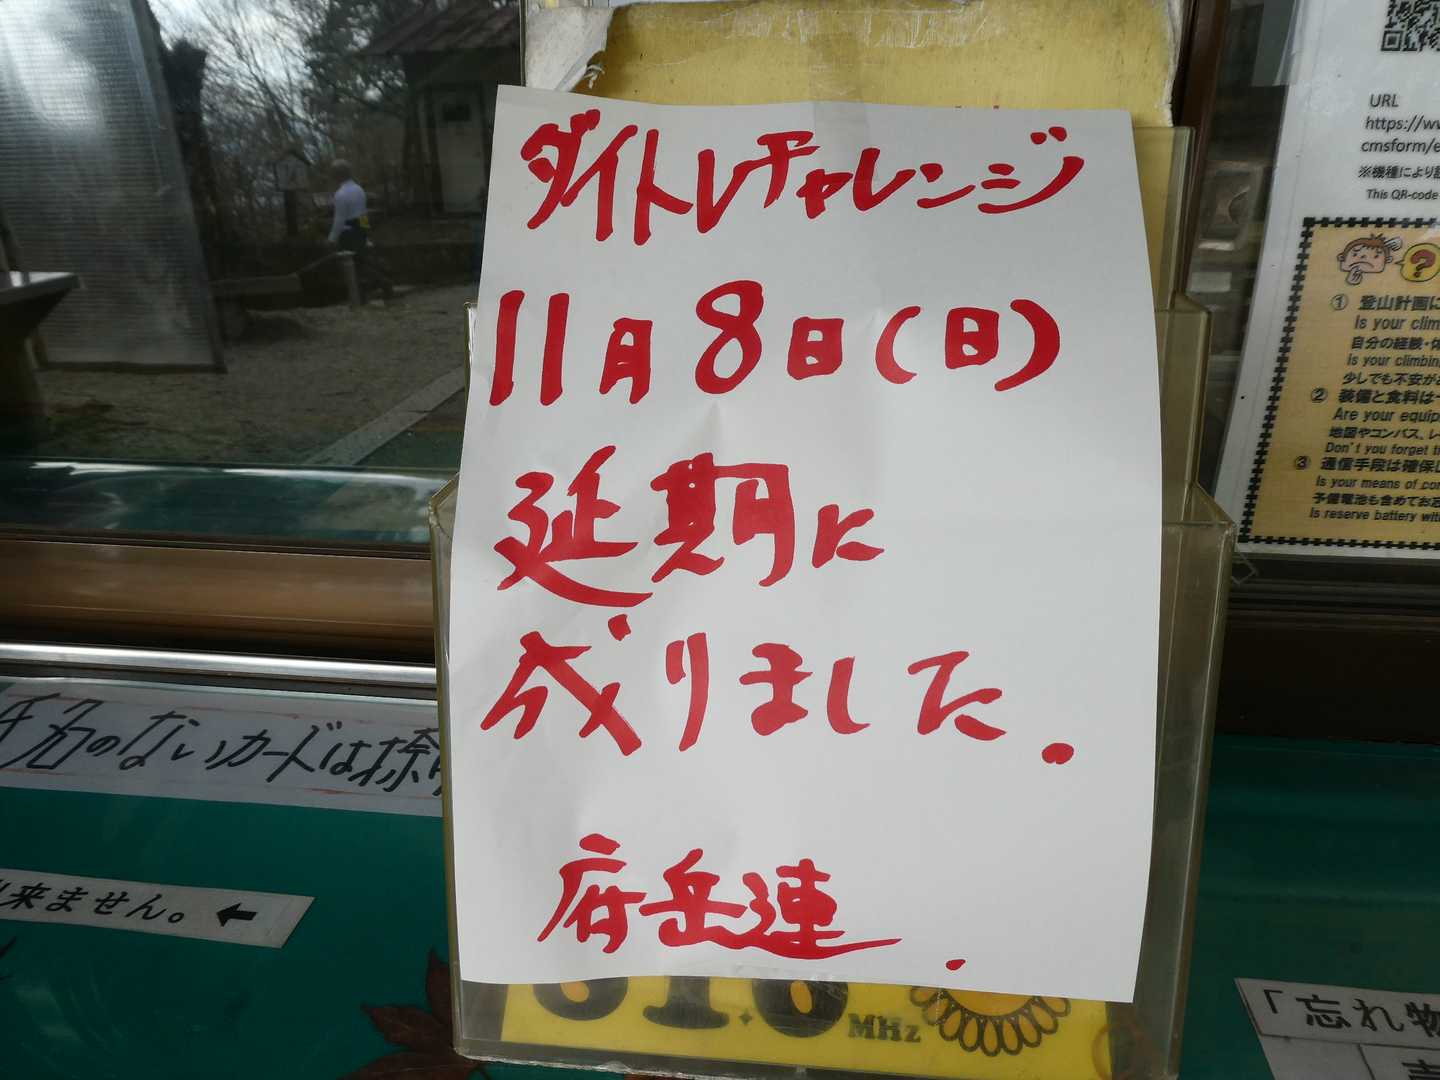 ダイトレチャレンジ
11月8日(日)
延期に
成りました.
府岳連.
MHz
のないカードは捺
来ません。←
URL
cmsform/e
※機種により
This QR-code
① 登山計画に
Is your clim
自分の経験・体
Is your climbin
少しでも不安が
② 装備と食料は
Are your equip
地図やコンパス、
Don't you forget t
③ 通信手段は確保し
Is your means of con
予備電池も含めてお忘
Is reserve battery wit
「忘れ物